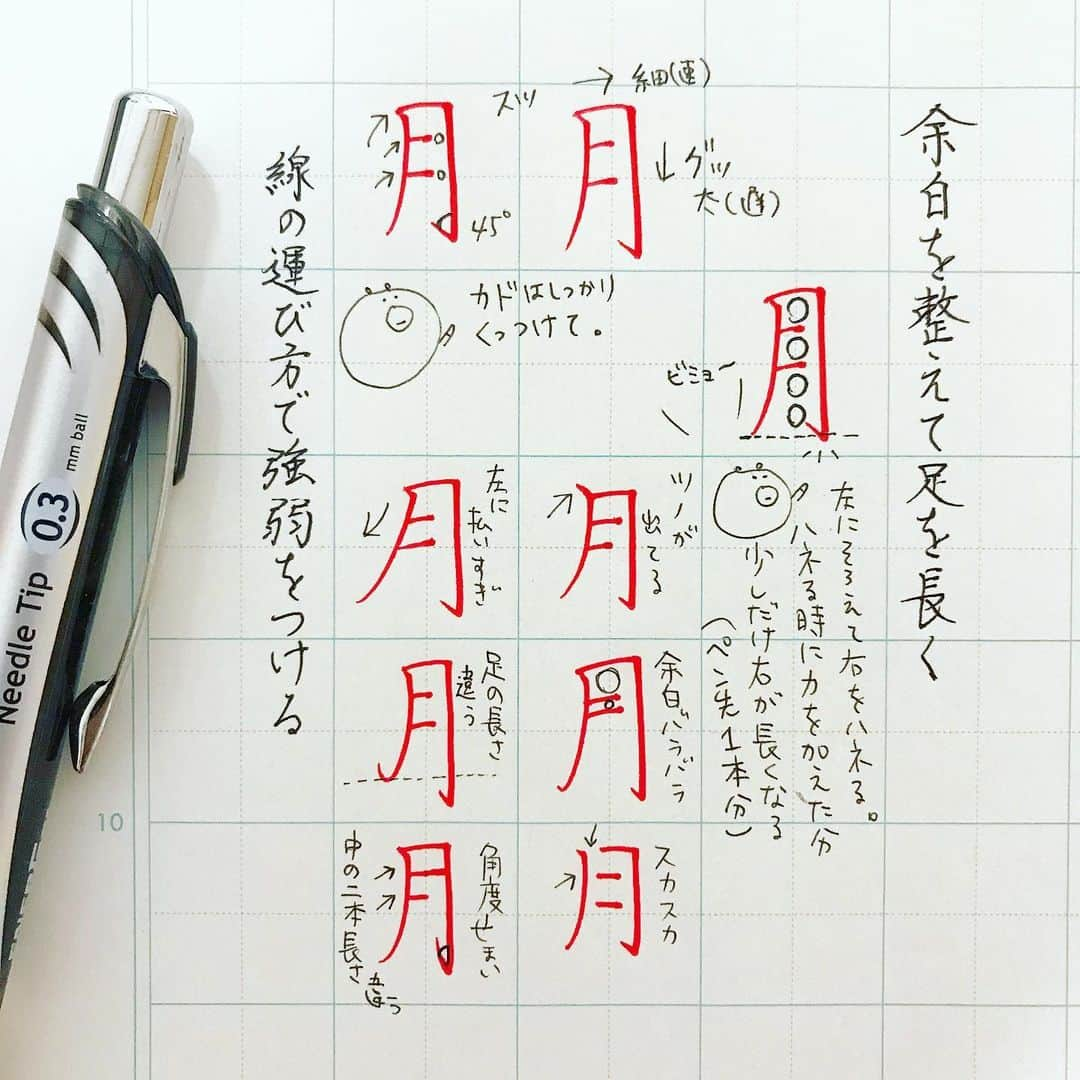 余白を整えて足を長く
月
ビミョー
左にそろえて右をハネる。
ハネる時に力を加えた分
少しだけ右が長くなる
(ペン先1本分)
→細(速)
月
↓グッ
太(遅)
月
45°
カドはしっかり
くっつけて。
月
ツノが
出てる
月
左に
払いすぎ
月
余白バラバラ
月
足の長さ
違う
月
スカスカ
月
角度せまい
中の二本長さ
違う
線の運び方で強弱をつける
Needle Tip 0.3 mm ball
10